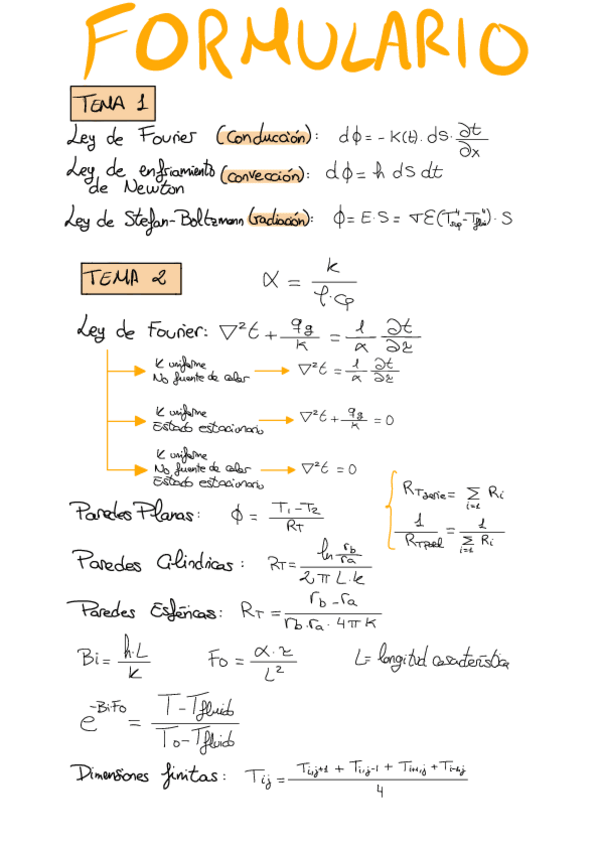 FORMULARIO
TEMA 1
Ley de Fourier (conducción): dϕ = - K(t) · dS · ∂t/∂x
Ley de enfriamiento (convección): dϕ = h dS dt
de Newton
Ley de Stefan-Boltzmann (radiación): ϕ = E·S = σε(T⁴sup - T⁴flui) · S
TEMA 2
α = k / ρ·cp
Ley de Fourier: ∇²t + qg/k = 1/α ∂t/∂z
K uniforme
No fuente de calor → ∇²t = 1/α ∂t/∂z
K uniforme
Estado estacionario → ∇²t + qg/k = 0
K uniforme
No fuente de calor → ∇²t = 0
Estado estacionario
RTserie = Σ i=1 Ri
Paredes Planas: ϕ = T1 - T2 / RT
1/RTparal = 1 / Σ i=1 Ri
Paredes Cilíndricas: RT = ln rb/ra / 2πL·k
Paredes Esféricas: RT = rb - ra / rb·ra·4πK
Bi = h·L / k Fo = α·z / L² L = longitud característica
e^-BiFo = T - Tfluido / To - Tfluido
Dimensiones finitas: Tij = Ti,j+1 + Ti,j-1 + Ti+1,j + Ti-1,j / 4